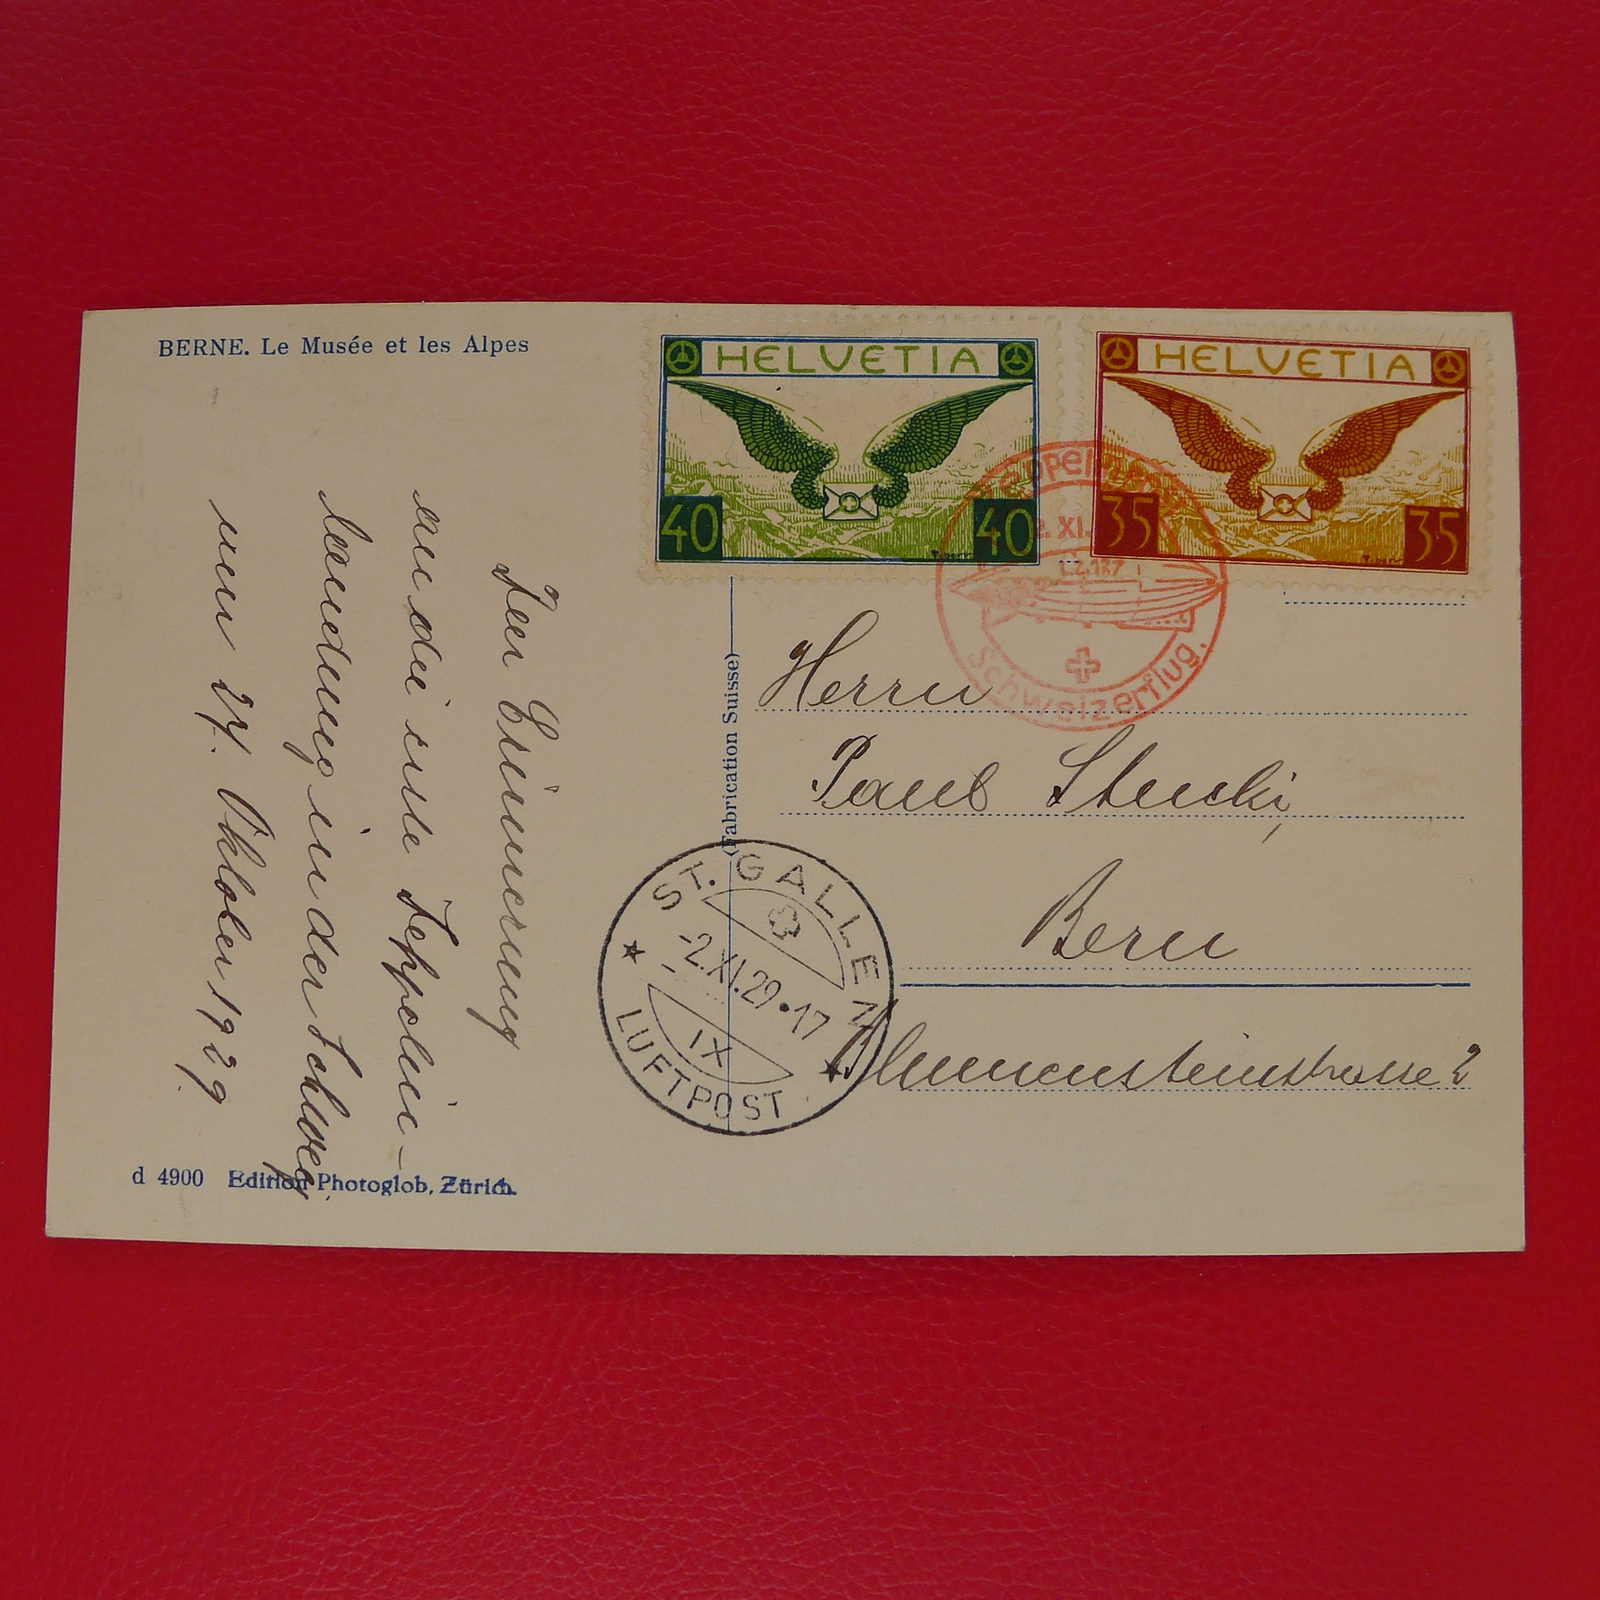 BERNE. Le Musée et les Alpes
HELVETIA
40 40
HELVETIA
35 35
2. XI.
L.Z.127
Schweizerflug.
(Fabrication Suisse)
Herrn
Paul Stucki,
Bern
Blumensteinstrasse 2
ST. GALLEN
-2.XI.29•17
IX
LUFTPOST
Zur Erinnerung
an die erste Zeppelin-
landung in der Schweiz.
vom 27. Oktober 1929.
d 4900 Edition Photoglob, Zürich.